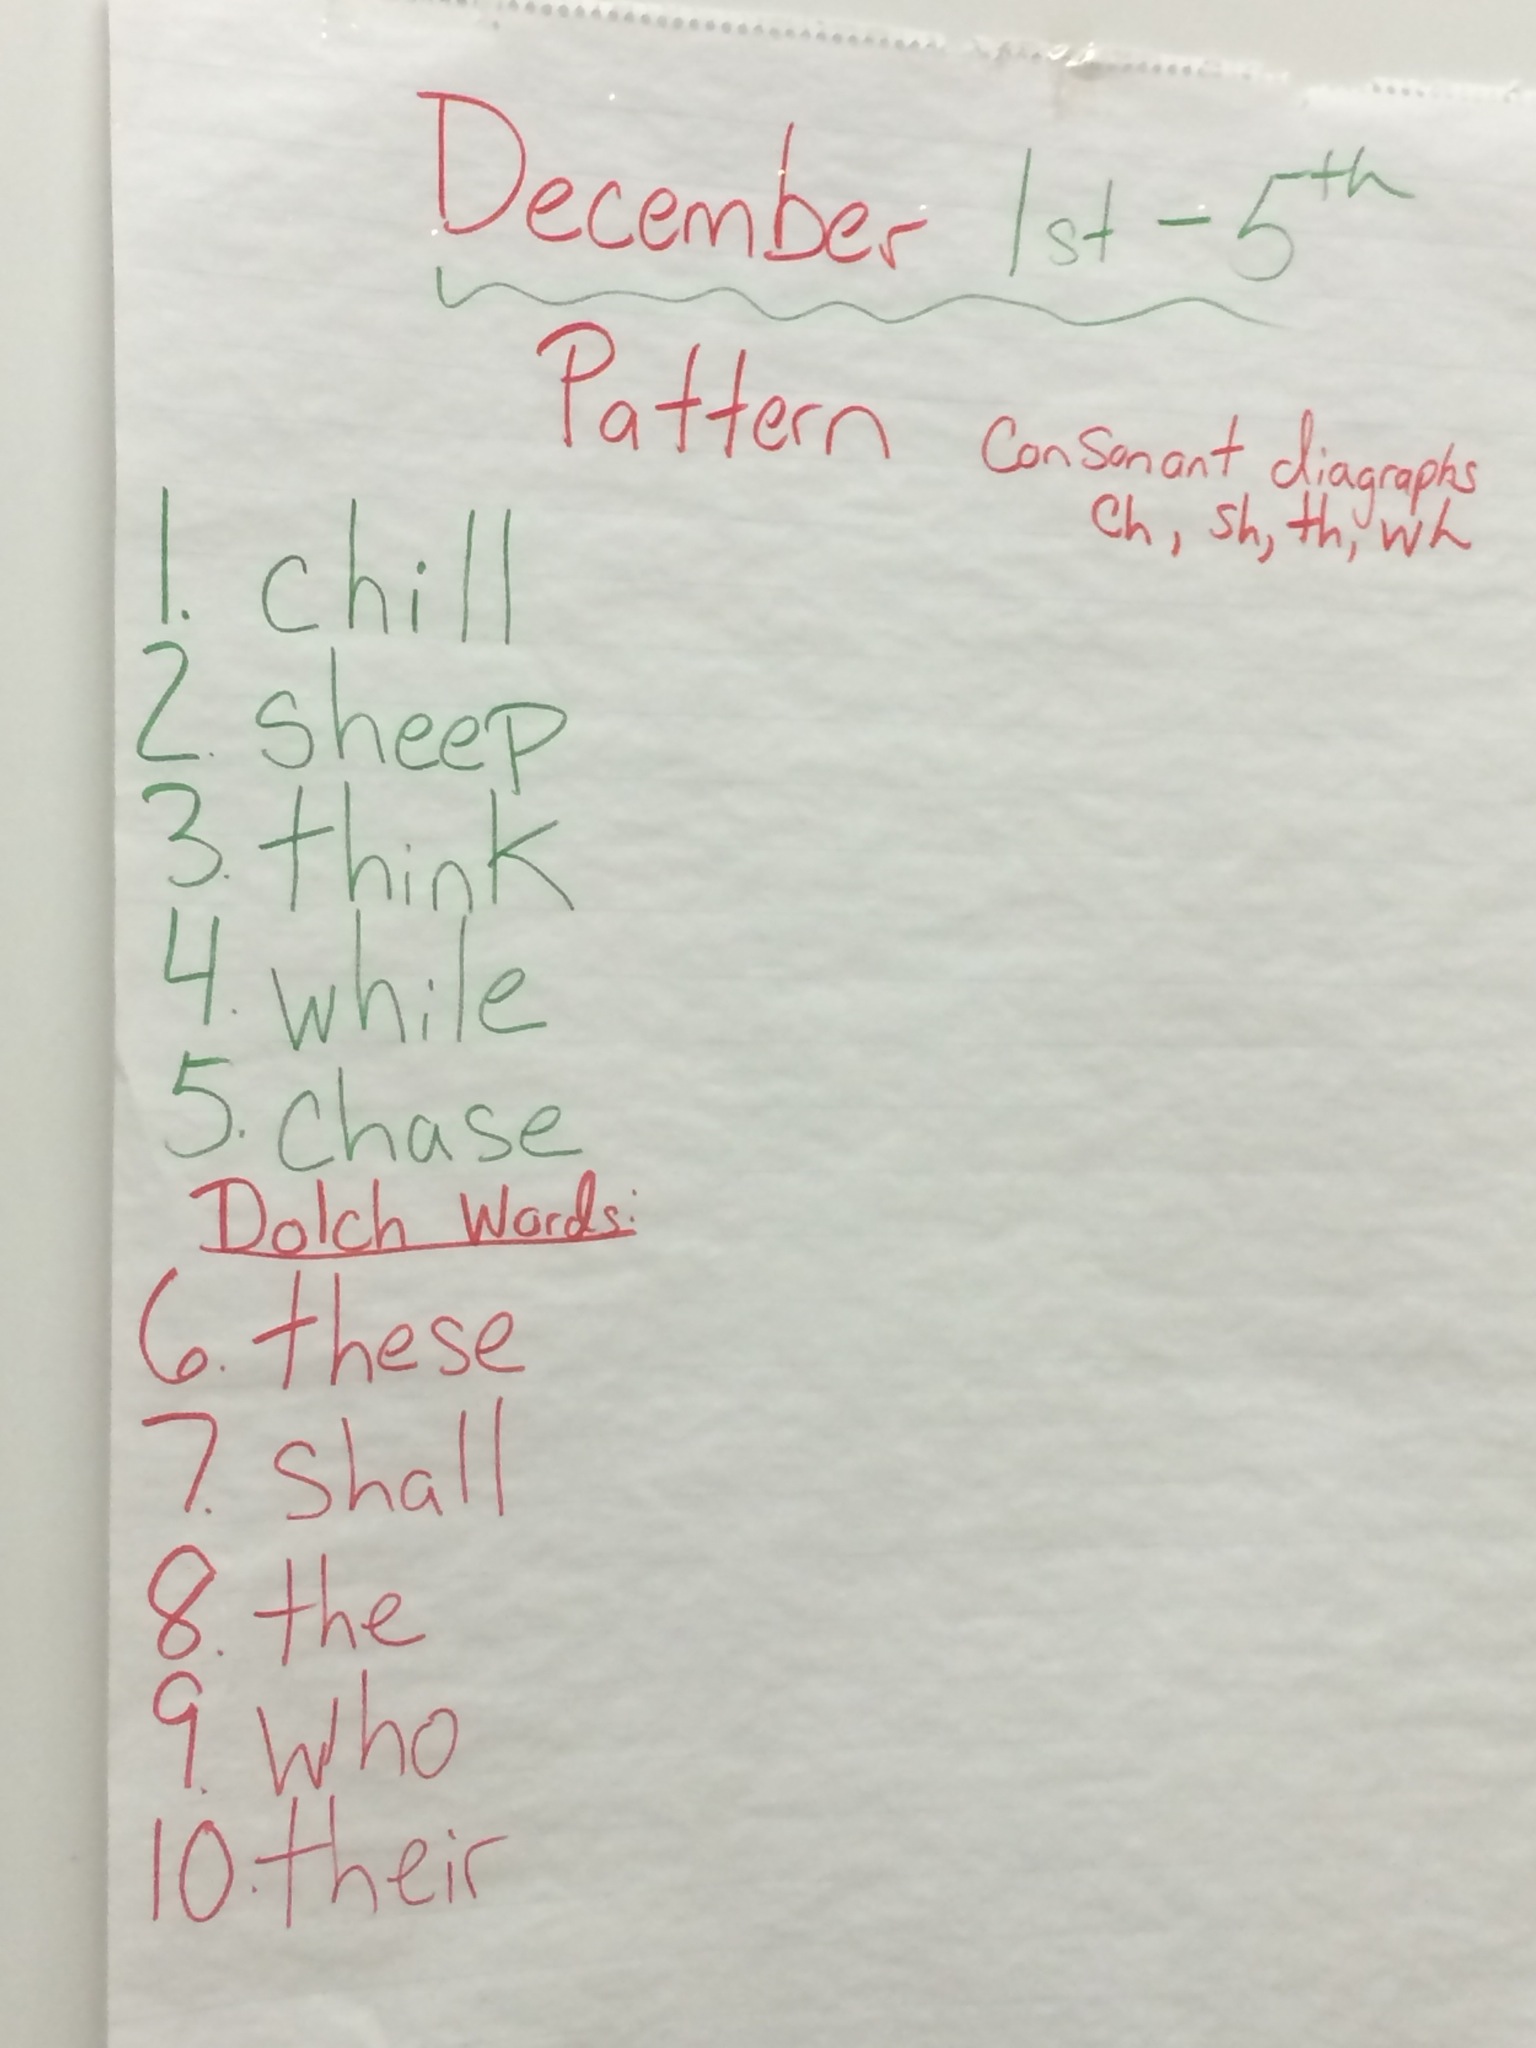 December 1st - 5th
Pattern
Consonant diagraphs
Ch, sh, th, wh
1. chill
2. sheep
3. think
4. while
5. chase
Dolch Words:
6. these
7. shall
8. the
9. who
10. their